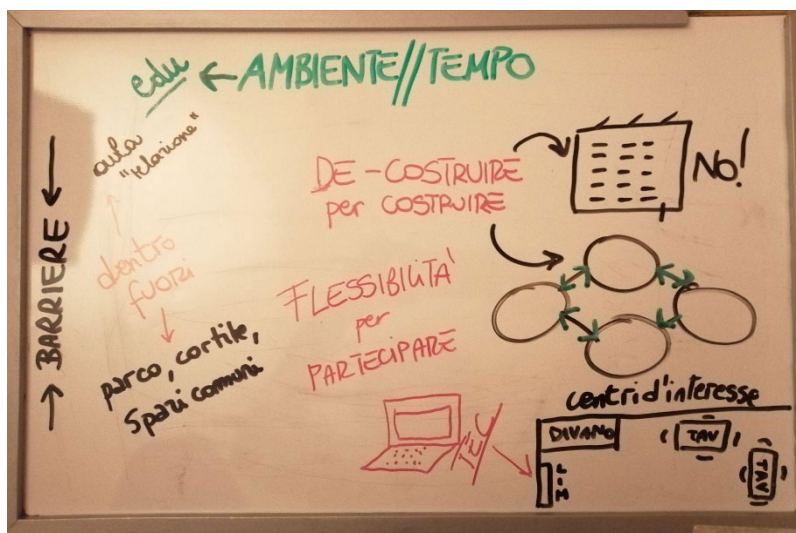 edu ← AMBIENTE//TEMPO
aula
"relazione"
→ BARRIERE ←
dentro
fuori
parco, cortile,
spazi comuni
DE-COSTRUIRE
per COSTRUIRE
NO!
FLESSIBILITÀ
per
PARTECIPARE
TEC
centri d'interesse
DIVANO
TAV
LIM
TAV